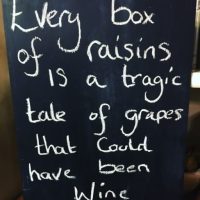 Every box
of raisins
is a tragic
tale of grapes
that could
have been
Wine